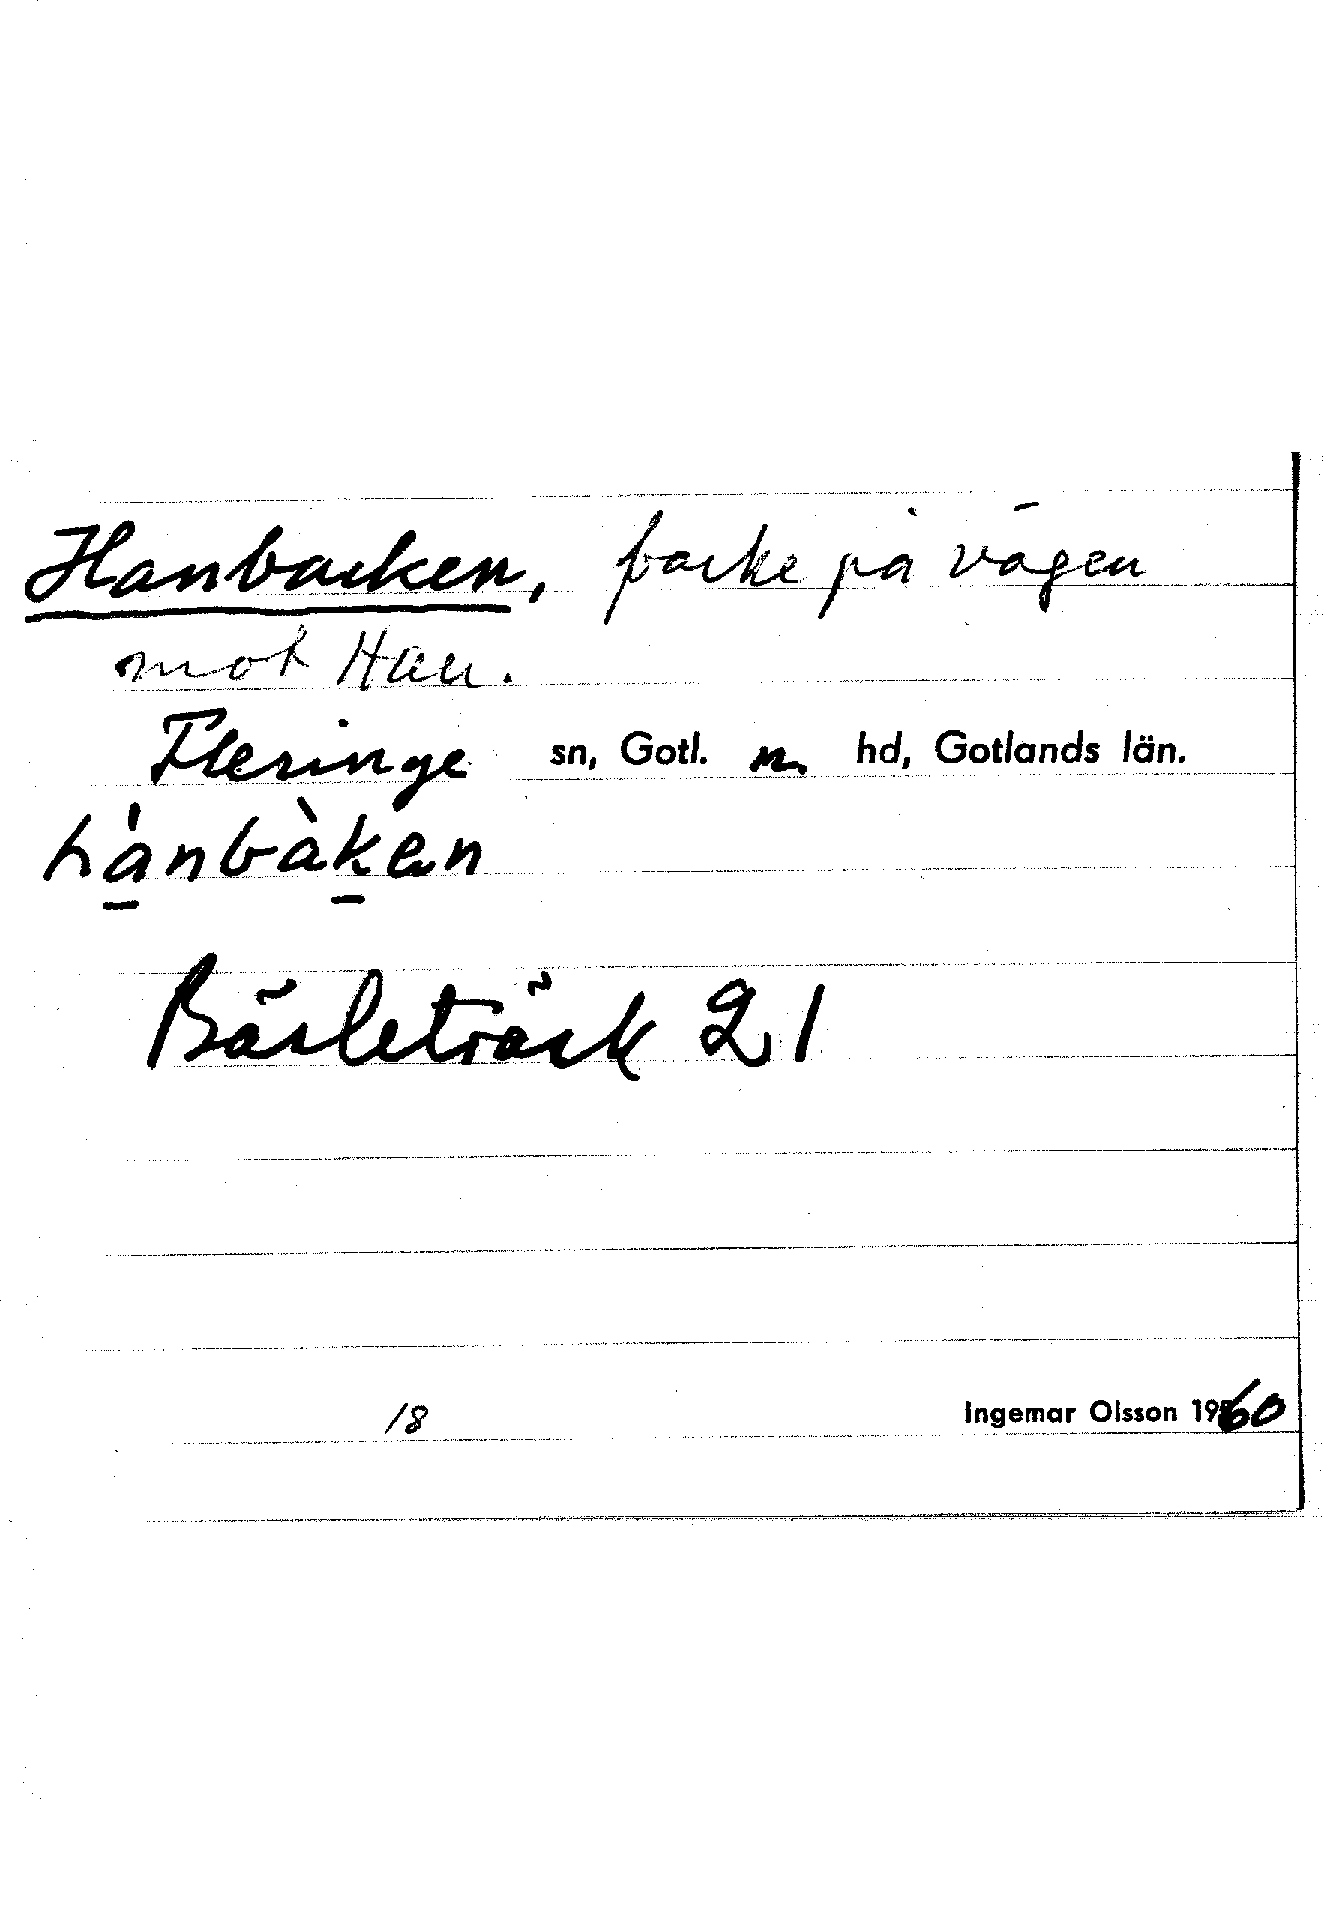 Hanbacken, backe på vägen
mot Hau.
Fleringe sn, Gotl. n. hd, Gotlands län.
hànbàken
Bäsleträsk 21
18 Ingemar Olsson 1960